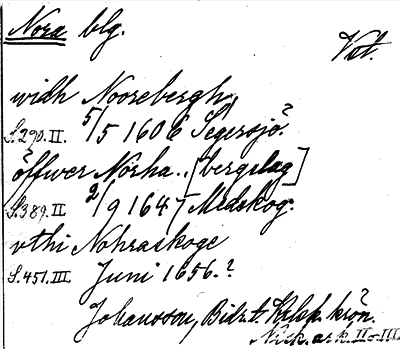 Nora blg.
Vst.
widh Noorebergh,
S.290.II. 5/5 1606 Segersjö?
öffwer Norha.. [bergslag]
S.389.II 2/9 1647 Medskog.
vthi Nohraskoge
S.451.III. Juni 1656.?
Johansson, Bidr. t. Kelsp. krön.
Nick. ark. II-III.